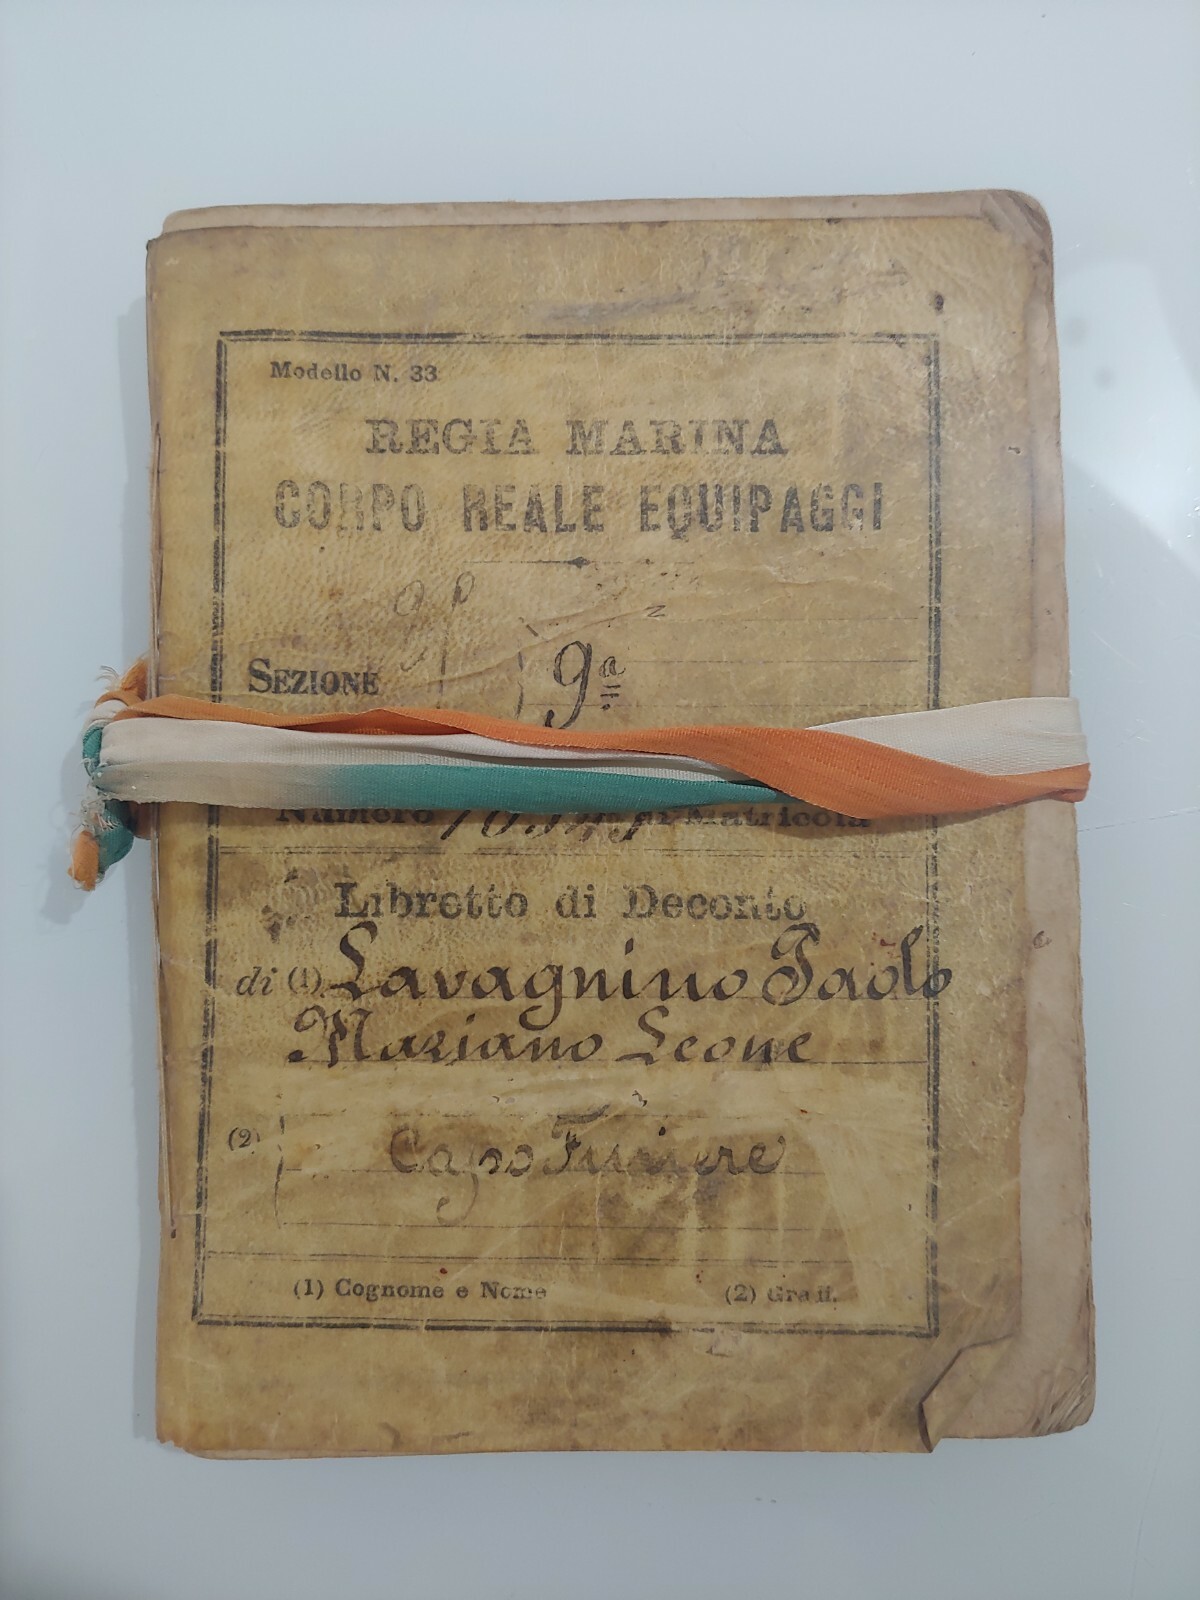 Modello N. 33
REGIA MARINA
CORPO REALE EQUIPAGGI
SEZIONE 9ª
Numero di Matricola
Libretto di Deconto
di (1) Lavagnino Paolo
Mariano Leone
(2) Capo Furiere
(1) Cognome e Nome (2) Gradi.